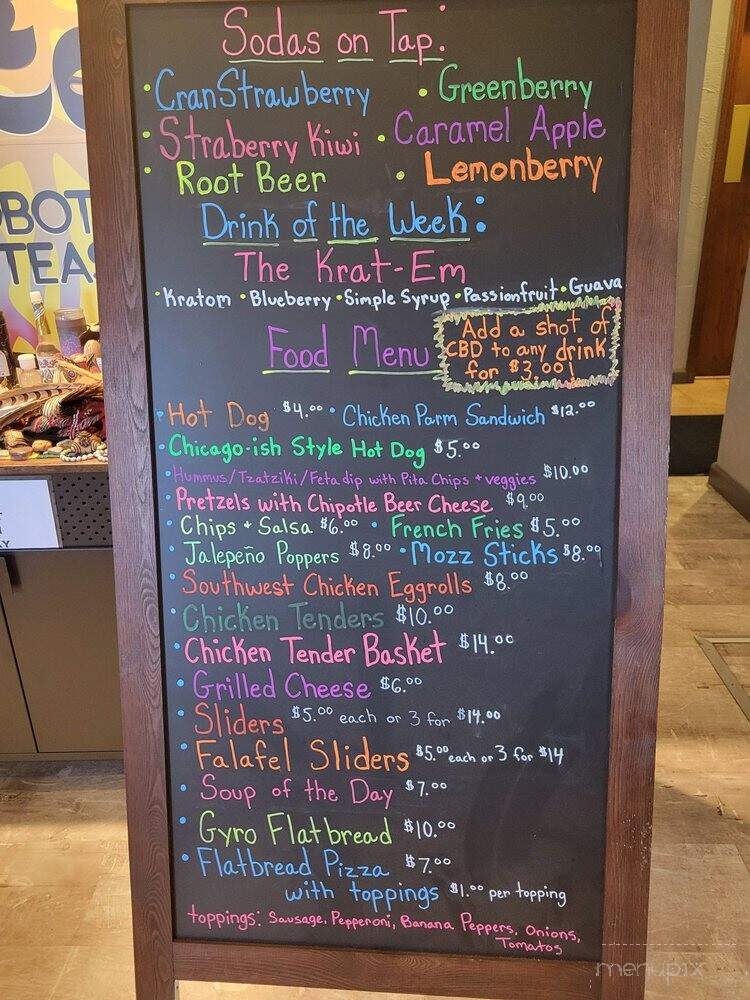 Sodas on Tap:
• CranStrawberry • Greenberry
• Straberry Kiwi • Caramel Apple
• Root Beer • Lemonberry
Drink of the Week:
The Krat-Em
• Kratom • Blueberry • Simple Syrup • Passionfruit • Guava
Food Menu
Add a shot of
CBD to any drink
for $3.00!
• Hot Dog $4.00 • Chicken Parm Sandwich $12.00
• Chicago-ish Style Hot Dog $5.00
• Hummus/Tzatziki/Feta dip with Pita Chips + veggies $10.00
• Pretzels with Chipotle Beer Cheese $9.00
• Chips + Salsa $6.00 • French Fries $5.00
• Jalepeño Poppers $8.00 • Mozz Sticks $8.00
• Southwest Chicken Eggrolls $8.00
• Chicken Tenders $10.00
• Chicken Tender Basket $14.00
• Grilled Cheese $6.00
• Sliders $5.00 each or 3 for $14.00
• Falafel Sliders $5.00 each or 3 for $14
• Soup of the Day $7.00
• Gyro Flatbread $10.00
• Flatbread Pizza $7.00
with toppings $1.00 per topping
toppings: Sausage, Pepperoni, Banana Peppers, Onions,
Tomatos
OBOT
TEAS
menupix